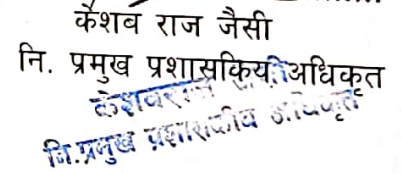 केशव राज जैसी
नि. प्रमुख प्रशासकिय अधिकृत
केशवराज
नि.प्रमुख प्रशासकीय अधिकृत